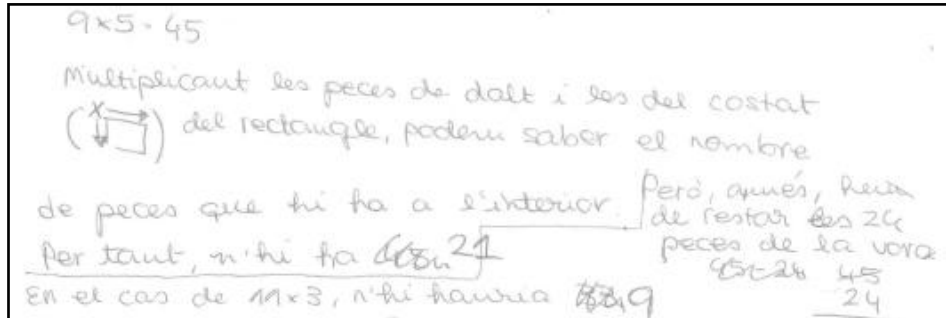 9x5=45
Multiplicant les peces de dalt i les del costat
(x) del rectangle, podem saber el nombre
de peces que hi ha a l'interior.
Per tant, n'hi ha 21
Però, després, hem
de restar les 24
peces de la vora
45-24 45
24
En el cas de 11x3, n'hi hauria 9